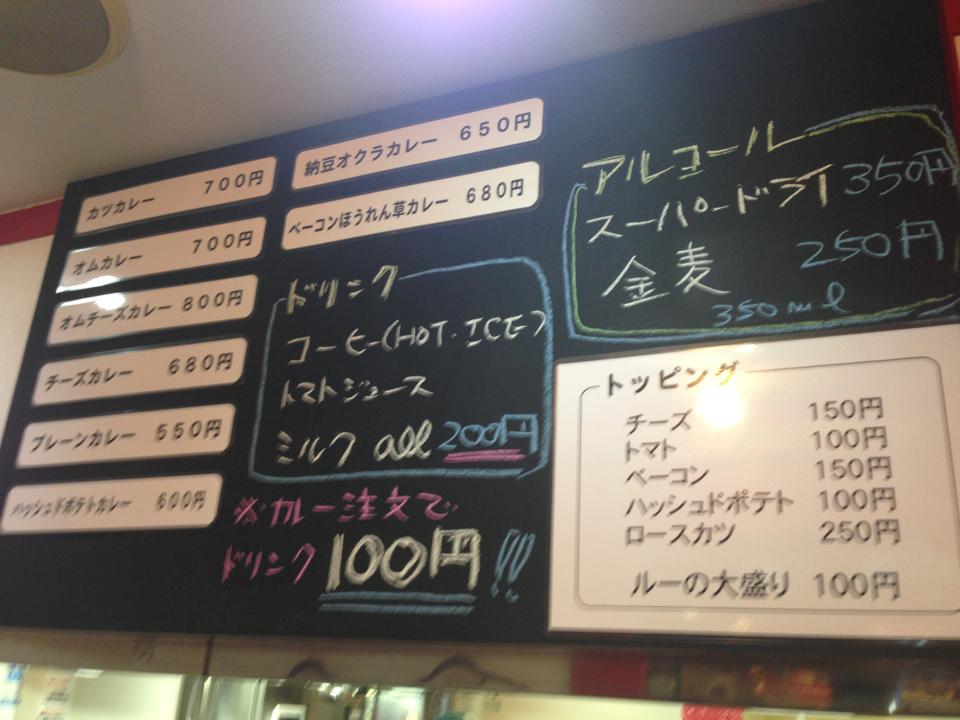 カツカレー 700円
オムカレー 700円
オムチーズカレー 800円
チーズカレー 680円
プレーンカレー 550円
ハッシュドポテトカレー 600円
納豆オクラカレー 650円
ベーコンほうれん草カレー 680円
ドリンク
コーヒー(HOT・ICE)
トマトジュース
ミルク all 200円
※カレー注文で
ドリンク 100円!!
アルコール
スーパードライ 350円
金麦 250円
350ml
トッピング
チーズ 150円
トマト 100円
ベーコン 150円
ハッシュドポテト 100円
ロースカツ 250円
ルーの大盛り 100円